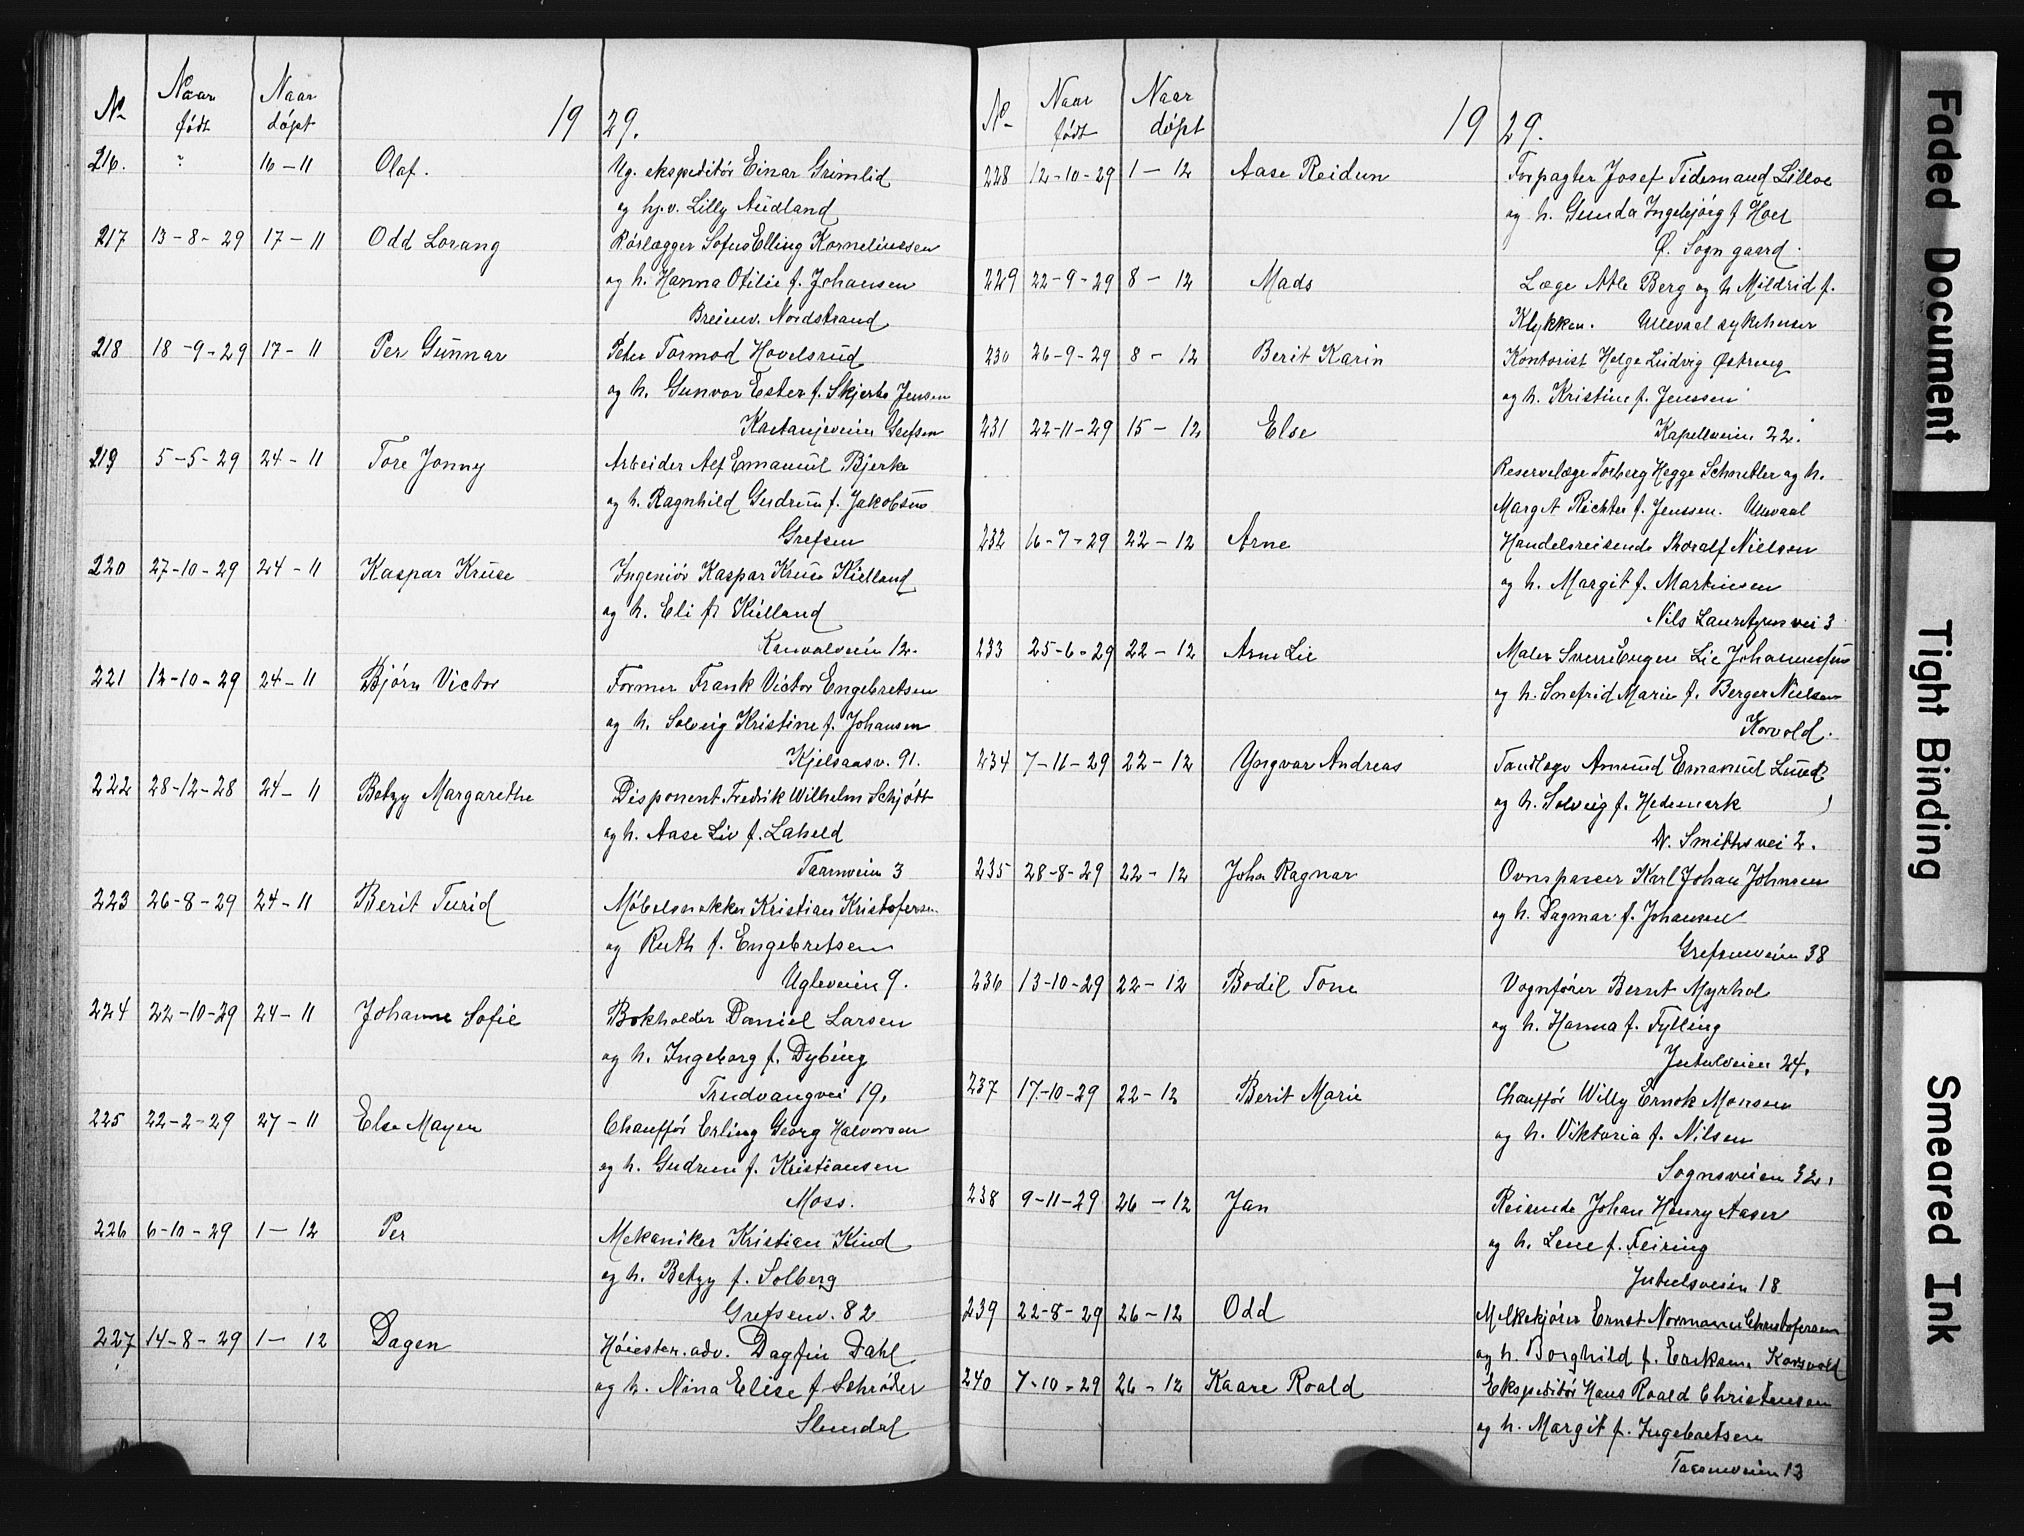 No Naar født Naar døpt 19 29.
216. ? 16-11 Olaf. Ug. ekspeditör Einar Grimlid
og hj.v. Lilly Audland
217 13-8-29 17-11 Odd Lorang Rørlægger Sofus Elling Korneliussen
og h. Hanna Otilie f. Johansen
Breinv. Nordstrand
218 18-9-29 17-11 Per Gunnar Peter Tormod Hovelsrud
og h. Gunvor Ester f. Skjerke Jensen
Kastanjeveien Grefsen
219 5-5-29 24-11 Tore Jonny Arbeider Alf Emanuel Bjerke
og h. Ragnhild Gudrun f. Jakobsen
Grefsen
220 27-10-29 24-11 Kaspar Kruse Ingeniör Kaspar Kruse Kielland
og h. Eli f. Kielland
12.
221 12-10-29 24-11 Bjørn Victor Former Frank Victor Engebretsen
og h. Solveig Kristine f. Johansen
Kjelsaasv. 91.
222 28-12-28 24-11 Betzy Margarethe Disponent Fredrik Wilhelm Schjøtt
og h. Aase Liv f. Laheld
Taasenveien 3
223 26-8-29 24-11 Berit Turid Møbelsnekker Kristian Kristofersen
og Ruth f. Engebretsen
Ugleveien 9.
224 22-10-29 24-11 Johanne Sofie Bokholder Daniel Larsen
og h. Ingeborg f. Dybing
Trudvangvei 19.
225 22-2-29 27-11 Else Mayen Chauffør Erling Georg Halvorsen
og h. Gudrun f. Kristiansen
Moss.
226 6-10-29 1-12 Per Mekaniker Kristian Kind
og h. Betzy f. Solberg
Grefsenv. 82
227 14-8-29 1-12 Dagen Høiester.adv. Dagfin Dahl
og h. Nina Elise f. Schrøder
Slemdal
No Naar født Naar døpt 19 29.
228 12-10-29 1-12 Aase Reidun Forpagter Josef Tidemand Lilloe
og h. Gunda Ingebjørg f. Hoel
Ø. Sogn gaard.
229 22-9-29 8-12 Mads Læge Atle Berg og h. Mildrid f.
Klykken. Ullevaal sykehuser
230 26-9-29 8-12 Berit Karin Kontorist Helge Ludvig Østreng
og h. Kristine f. Jenssen
231 22-11-29 15-12 Else Kapellveien 22.
Reservelæge Torberg Hegge Schnitler og h.
Margit Richter f. Jenssen. Ullevaal
232 16-7-29 22-12 Arne Handelsreisende Thoralf Nielsen
og h. Margit f. Martinsen
Nils Lauritzens vei 3
233 25-6-29 22-12 Arne Lie Maler Sverre Eugen Lie Johannessen
og h. Snefrid Marie f. Berger Nielsen
Korvold.
234 7-11-29 22-12 Yngvar Andreas Tandlege Amund Emanuel Lund
og h. Solveig f. Hedemark
Dr. Smiths vei 2.
235 28-8-29 22-12 John Ragnar Ovnspasser Karl Johan Johnsen
og h. Dagmar f. Johansen
Grefsenveien 38
236 13-10-29 22-12 Bodil Tone Vognfører Bernt Myrhol
og h. Hanna f. Fylling
Jutulveien 24.
237 17-10-29 22-12 Berit Marie Chauffør Willy Ernok Monssen
og h. Viktoria f. Nilsen
Sognsveien 32.
238 9-11-29 26-12 Jan Reisende Johan Henry Aaser
og h. Lene f. Feiring
Jutulsveien 18
239 22-8-29 26-12 Odd Melkekjører Ernst Normann Christofersen
og h. Borghild f. Eriksen Korsvold
240 7-10-29 26-12 Kaare Roald Ekspeditör Hans Roald Christensen
og h. Margit f. Ingebretsen
Taasenveien 13
Faded Document
Tight Binding
Smeared Ink